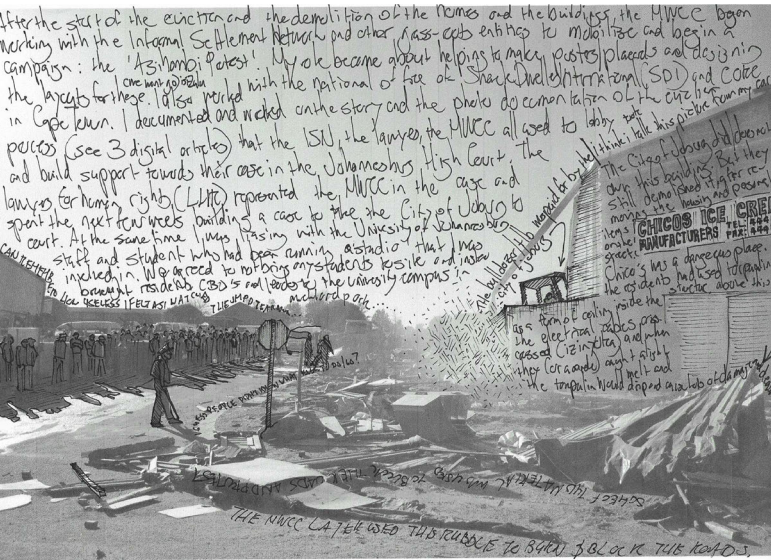 After the start of the eviction and the demolition of the homes and the buildings, the MWCC began
working with the Informal Settlement Network and other grass-roots entities to mobilize and begin a
campaign: the 'Asihambi Protest'. My role became about helping to make posters placards and designing
the layouts for these. I also worked with the national office of Shack Dwellers International (SDI) and CORC
in Cape Town. I documented and worked on the story and the photo documentation of the eviction
process (see 3 digital articles) that the ISN, the lawyers, the MWCC all used to lobby
and build support towards their case in the Johannesburg High Court. The
lawyers for human rights (LHR) represented the MWCC in the case and
spent the next few weeks building a case to take the City of Joburg to
court. At the same time I was liasing with the University of Johannesburg
staff and student who had been running a studio that I was
involved in. We agreed to not bring any students to site and instead
brought residents CBO's and leaders to the university campus in
auckland park
I think I take this picture from my car
The City of Joburg did does not
own this building. But they
still demolished it after re-
moving the housing and
CHICOS ICE CRE
MANUFACTURERS TEL:
FAX:
Chico's was a dangerous place.
the residents had used tarpaulin
above this
as a form of ceiling inside the
the electrical cables
crossed (izinyoka) and when
they (or a candle) caught alight
the tarpaulin would drip and melt and
the bulldozer
city of joburg
USELESS I FELT AS I WATCHED
THE MWCC LATER USED THE RUBBLE TO BURN & BLOCK THE ROADS.